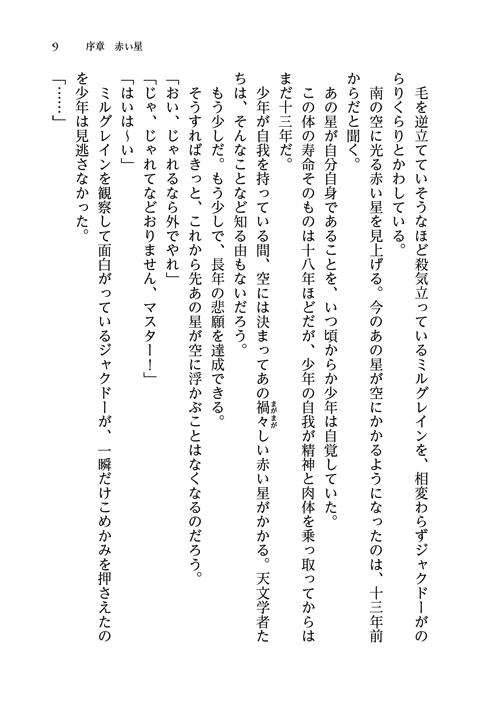 9　序章　赤い星
毛を逆立てていそうなほど殺気立っているミルグレインを、相変わらずジャクドーがの
らりくらりとかわしている。
南の空に光る赤い星を見上げる。今のあの星が空にかかるようになったのは、十三年前
からだと聞く。
あの星が自分自身であることを、いつ頃からか少年は自覚していた。
この体の寿命そのものは十八年ほどだが、少年の自我が精神と肉体を乗っ取ってからは
まだ十三年だ。
少年が自我を持っている間、空には決まってあの禍々しい赤い星がかかる。天文学者た
ちは、そんなことなど知る由もないだろう。
もう少しだ。もう少しで、長年の悲願を達成できる。
そうすればきっと、これから先あの星が空に浮かぶことはなくなるのだろう。
「おい、じゃれるなら外でやれ」
「じゃ、じゃれてなどおりません、マスター！」
「はいは～い」
ミルグレインを観察して面白がっているジャクドーが、一瞬だけこめかみを押さえたの
を少年は見逃さなかった。
「……」